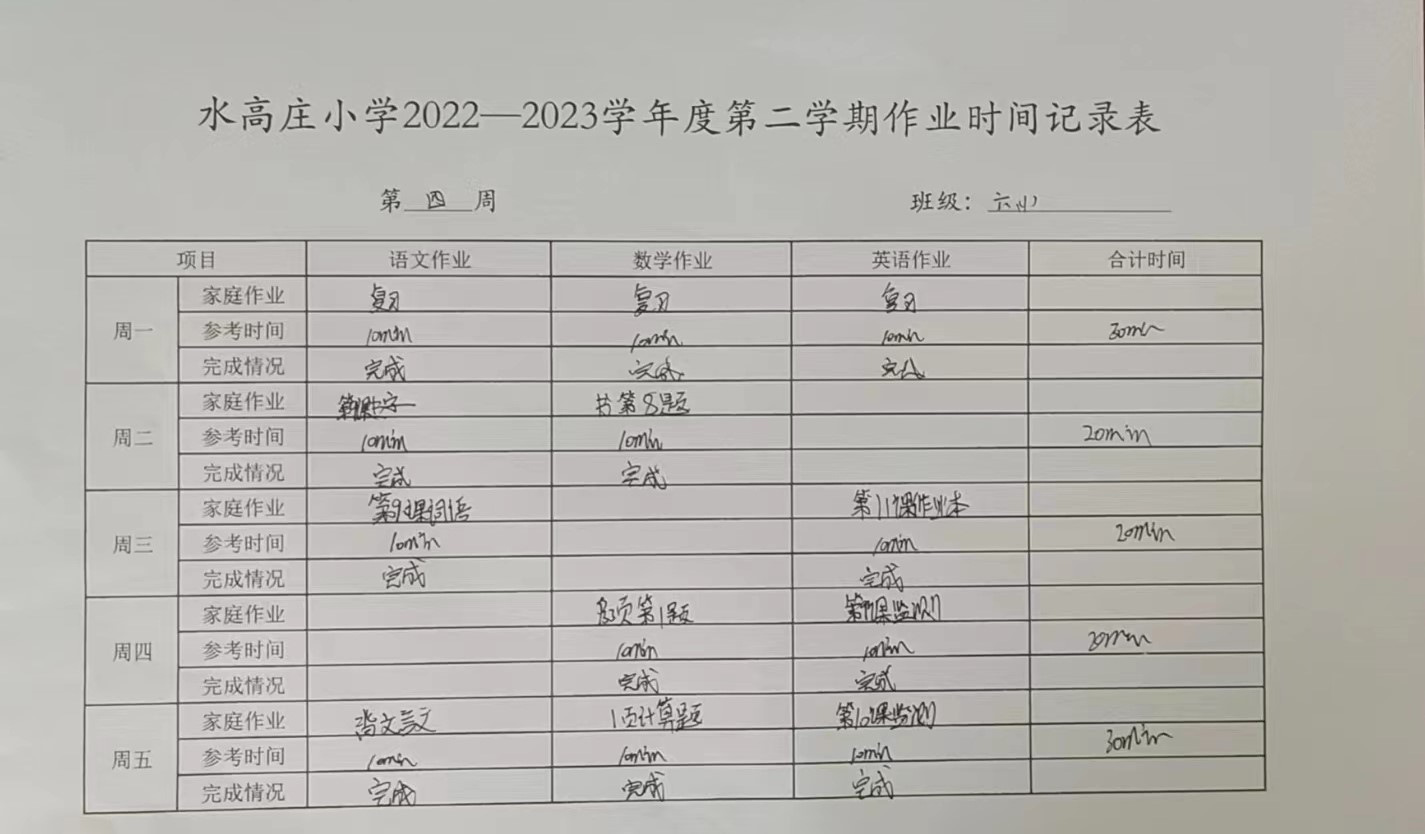 水高庄小学2022—2023学年度第二学期作业时间记录表
第四周 班级：六(1)
项目 语文作业 数学作业 英语作业 合计时间
周一
家庭作业 复习 复习 复习
参考时间 10min 10min 10min 30min
完成情况 完成 完成 完成
周二
家庭作业 书第8题
参考时间 10min 10min 20min
完成情况 完成 完成
周三
家庭作业 第9课词语 第11课作业本
参考时间 10min 10min 20min
完成情况 完成 完成
周四
家庭作业 页第1题 课监测
参考时间 10min 10min 20min
完成情况 完成 完成
周五
家庭作业 背文言文 1页计算题 第10课监测
参考时间 10min 10min 10min 30min
完成情况 完成 完成 完成